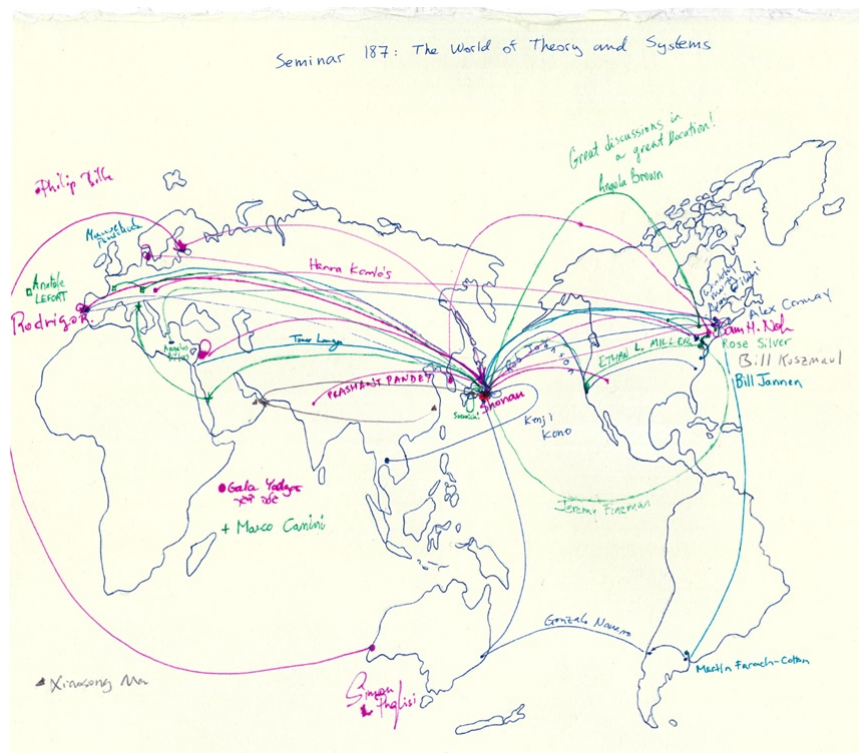 Seminar 187: The World of Theory and Systems
Great discussions in
a great location!
Angela Brown
Philip Bille
Anatole
LEFORT
Rodrigo
Hanna Komlós
Alex Conway
Sam H. Noh
Rose Silver
Bill Kuszmaul
Bill Jannen
ETHAN L. MILLER
Rob Johnson
PRASHANT PANDEY
Shonan
Kenji
Kono
Gala Yadgar
+ Marco Canini
Jeremy Fineman
Gonzalo Navarro
Martin Farach-Colton
Xiaosong Ma
Simon
Puglisi